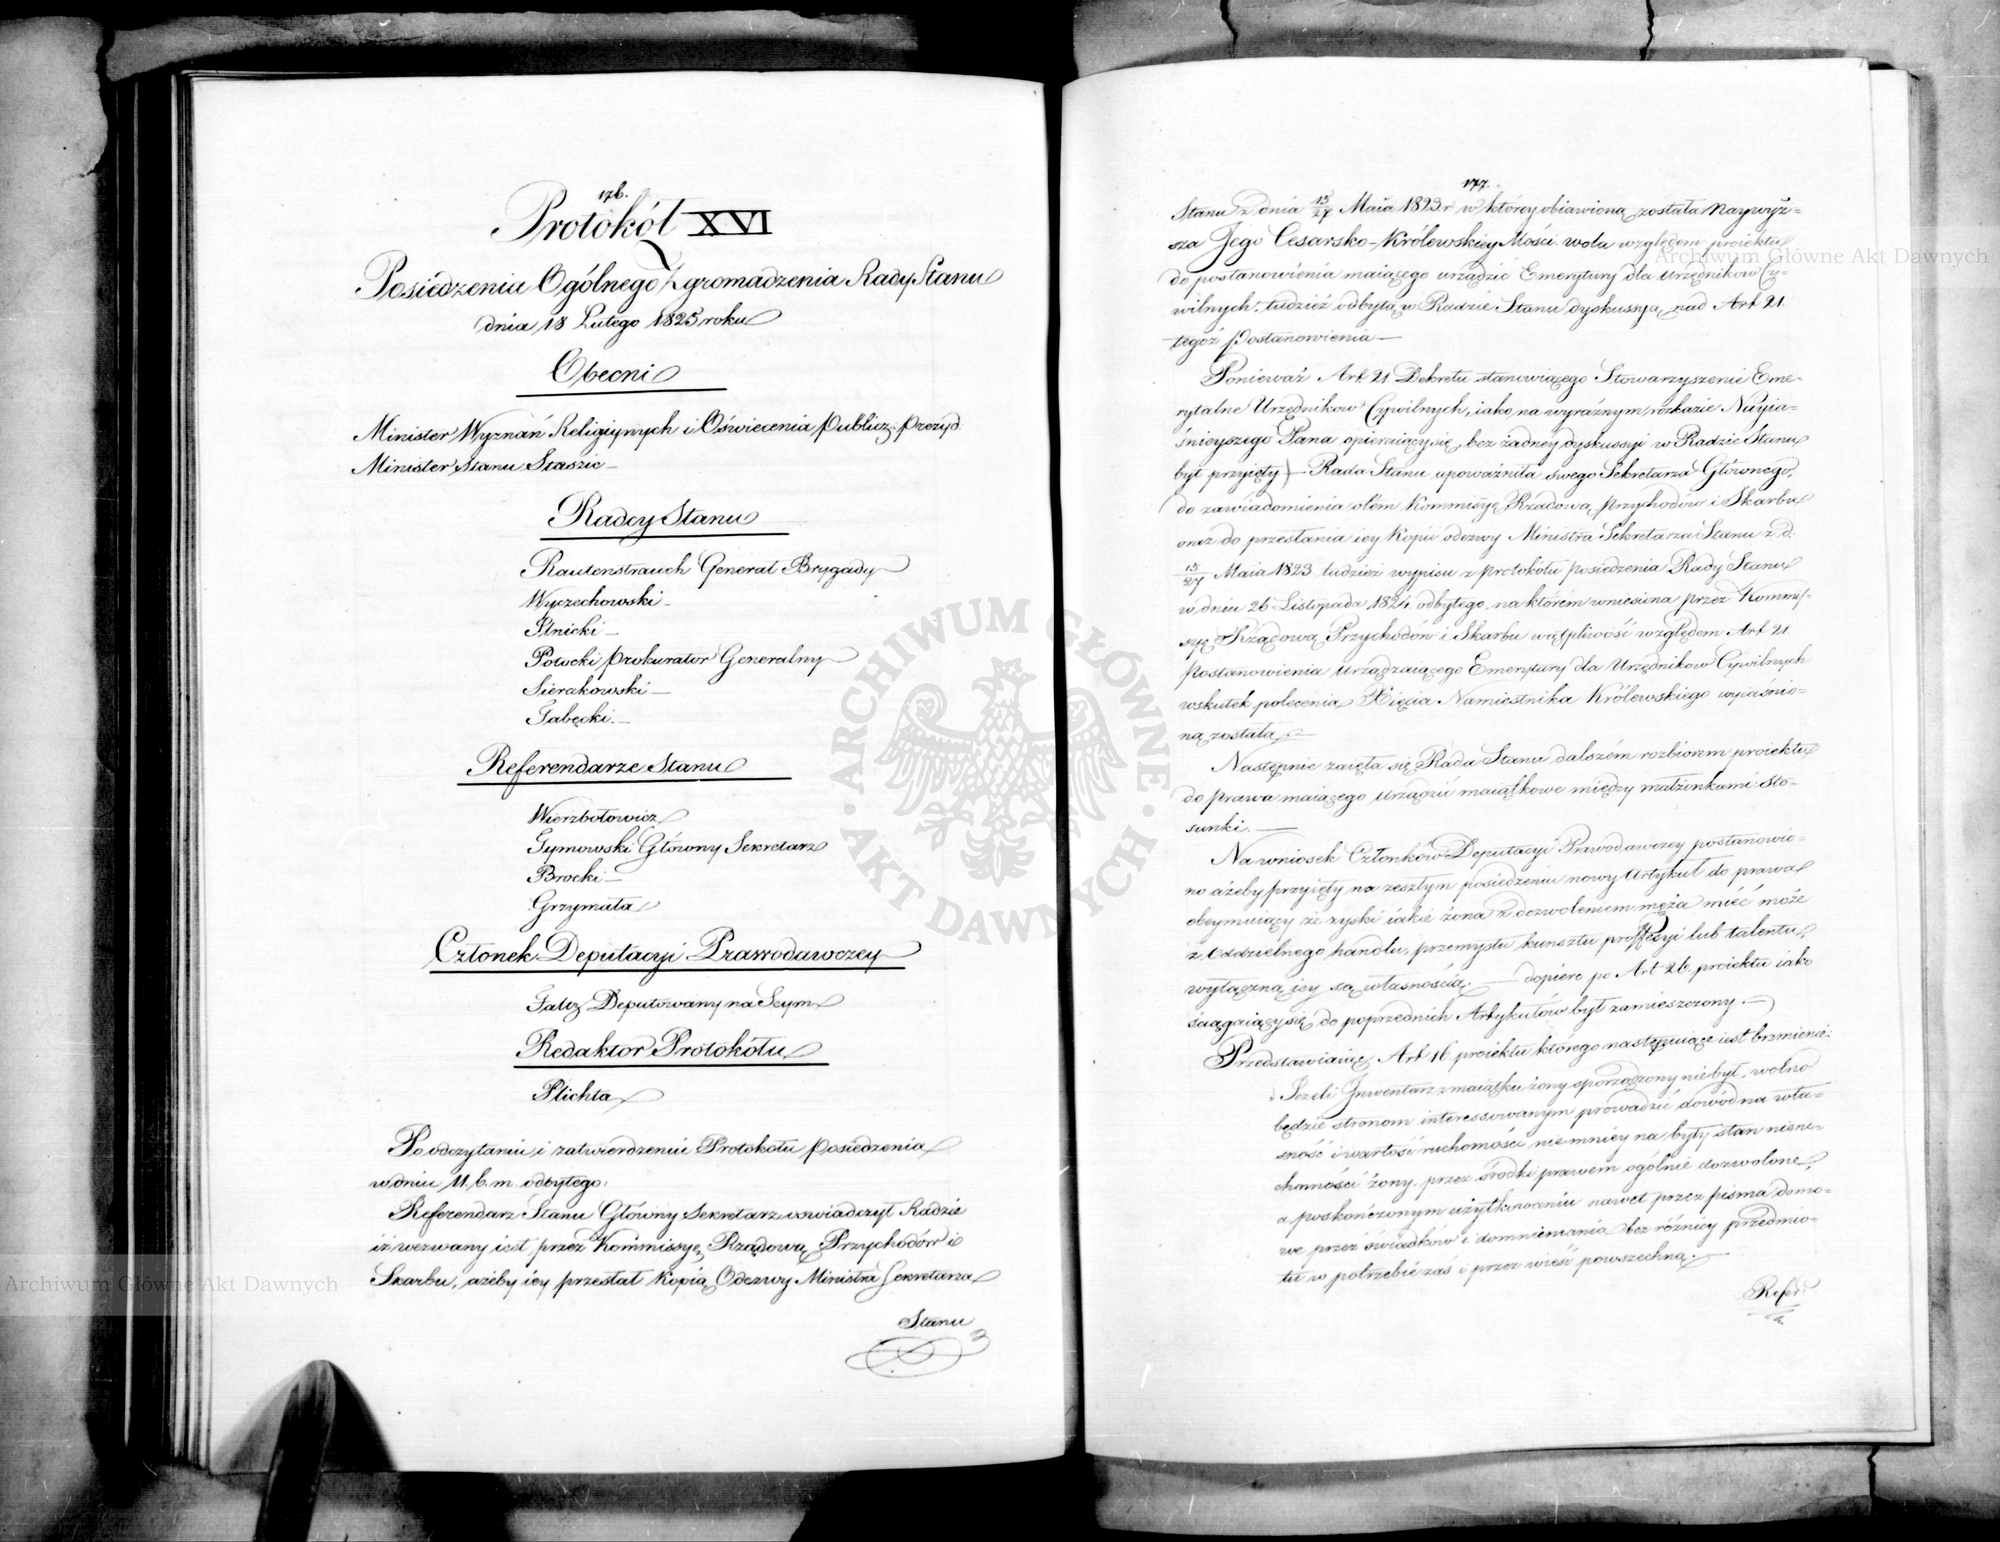 176.
Protokół XVI
Posiedzenia Ogólnego Zgromadzenia Rady Stanu
dnia 18 Lutego 1825 roku
Obecni
Minister Wyznań Religiynych i Oświecenia Publicz: Prezyd
Minister Stanu Staszic
Radcy Stanu
Rautenstrauch Generał Brygady
Wyczechowski
Ilnicki
Potocki Prokurator Generalny
Sierakowski
Gabęcki.
Referendarze Stanu
Wierzbołowicz
Tymowski Główny Sekretarz
Brocki
Grzymała
Członek Deputacyi Prawodawczey
Faltz Deputowany na Seym
Redaktor Protokółu
Plichta
Po odczytaniu i zatwierdzeniu Protokołu Posiedzenia
w dniu 11. b. m. odbytego:
Referendarz Stanu Główny Sekretarz oswiadczył Radzie
iż wezwany iest przez Kommissyę Rządową Przychodów i
Skarbu, ażeby iey przesłał Kopią Odezwy Ministra Sekretarza
Stanu
177.
Stanu z dnia 15/27 Maia 1823 r w którey obiawioną została Naywyż=
sza Jego Cesarsko-Królewskiey Mości wola względem proiektu
do postanowienia maiącego urządzić Emerytury dla Urzędnikow Cy-
wilnych, tudzież odbytą w Radzie Stanu dyskussyą nad Art 21
tegoż Postanowienia —
Ponieważ Art 21 Dekretu stanowiącego Stowarzyszenie Eme-
rytalne Urzędnikow Cywilnych, iako na wyraźnym rozkazie Nayia-
śnieyszego Pana opieraiący się, bez żadney dyskussyi w Radzie Stanu
był przyięty — Rada Stanu upoważniła swego Sekretarza Głównego,
do zawiadomienia o tém Kommisyę Rządową Przychodów i Skarbu
oraz do przesłania iey Kopii odezwy Ministra Sekretarza Stanu z d.
15/27 Maia 1823 tudzież wypisu z protokółu posiedzenia Rady Stanu
w dniu 26 Listopada 1824 odbytego, na którém wniesiona przez Kommis-
syę Rządową Przychodów i Skarbu wątpliwość względem Art 21
Postanowienia urządzaiącego Emerytury dla Urzędników Cywilnych
wskutek polecenia Xięcia Namiestnika Królewskiego wyiaśnio-
ną została,
Następnie zaięła się Rada Stanu dalszém rozbiorem proiektu
do prawa maiącego urządzić maiątkowe między małżonkami sto-
sunki. —
Na wniosek Członków Deputacyi Prawodawczey postanowio-
no ażeby przyięty na zeszłym posiedzeniu nowy Artykuł do prawa
obeymuiący że zyski iakie żona z dozwoleniem męża mieć może
z oddzielnego handlu, przemysłu kunsztu professyi lub talentu,
wyłączną iey są własnością. — dopiero po Art 26. proiektu iako
ściągaiący się do poprzednich Artykułów był zamieszczony. —
Przedstawiaiąc Art 16 proiektu którego następuiące iest brzmienie:
„Jeżeli Inwentarz z maiątku żony sporządzony nie był, wolno
będzie stronom interessowanym prowadzić dowód na wła-
sność i wartość ruchomości niemniey na były stan nieru-
chomości żony, przez środki prawem ogólnie dozwolone,
a po skończonym użytkowaniu nawet przez pisma domo-
we przez świadków i domniemania bez różnicy przedmio-
tu w potrzebie zaś i przez wieść powszechną.
Refer:
Archiwum Główne Akt Dawnych
Archiwum Główne Akt Dawnych
ARCHIWUM GŁÓWNE AKT DAWNYCH